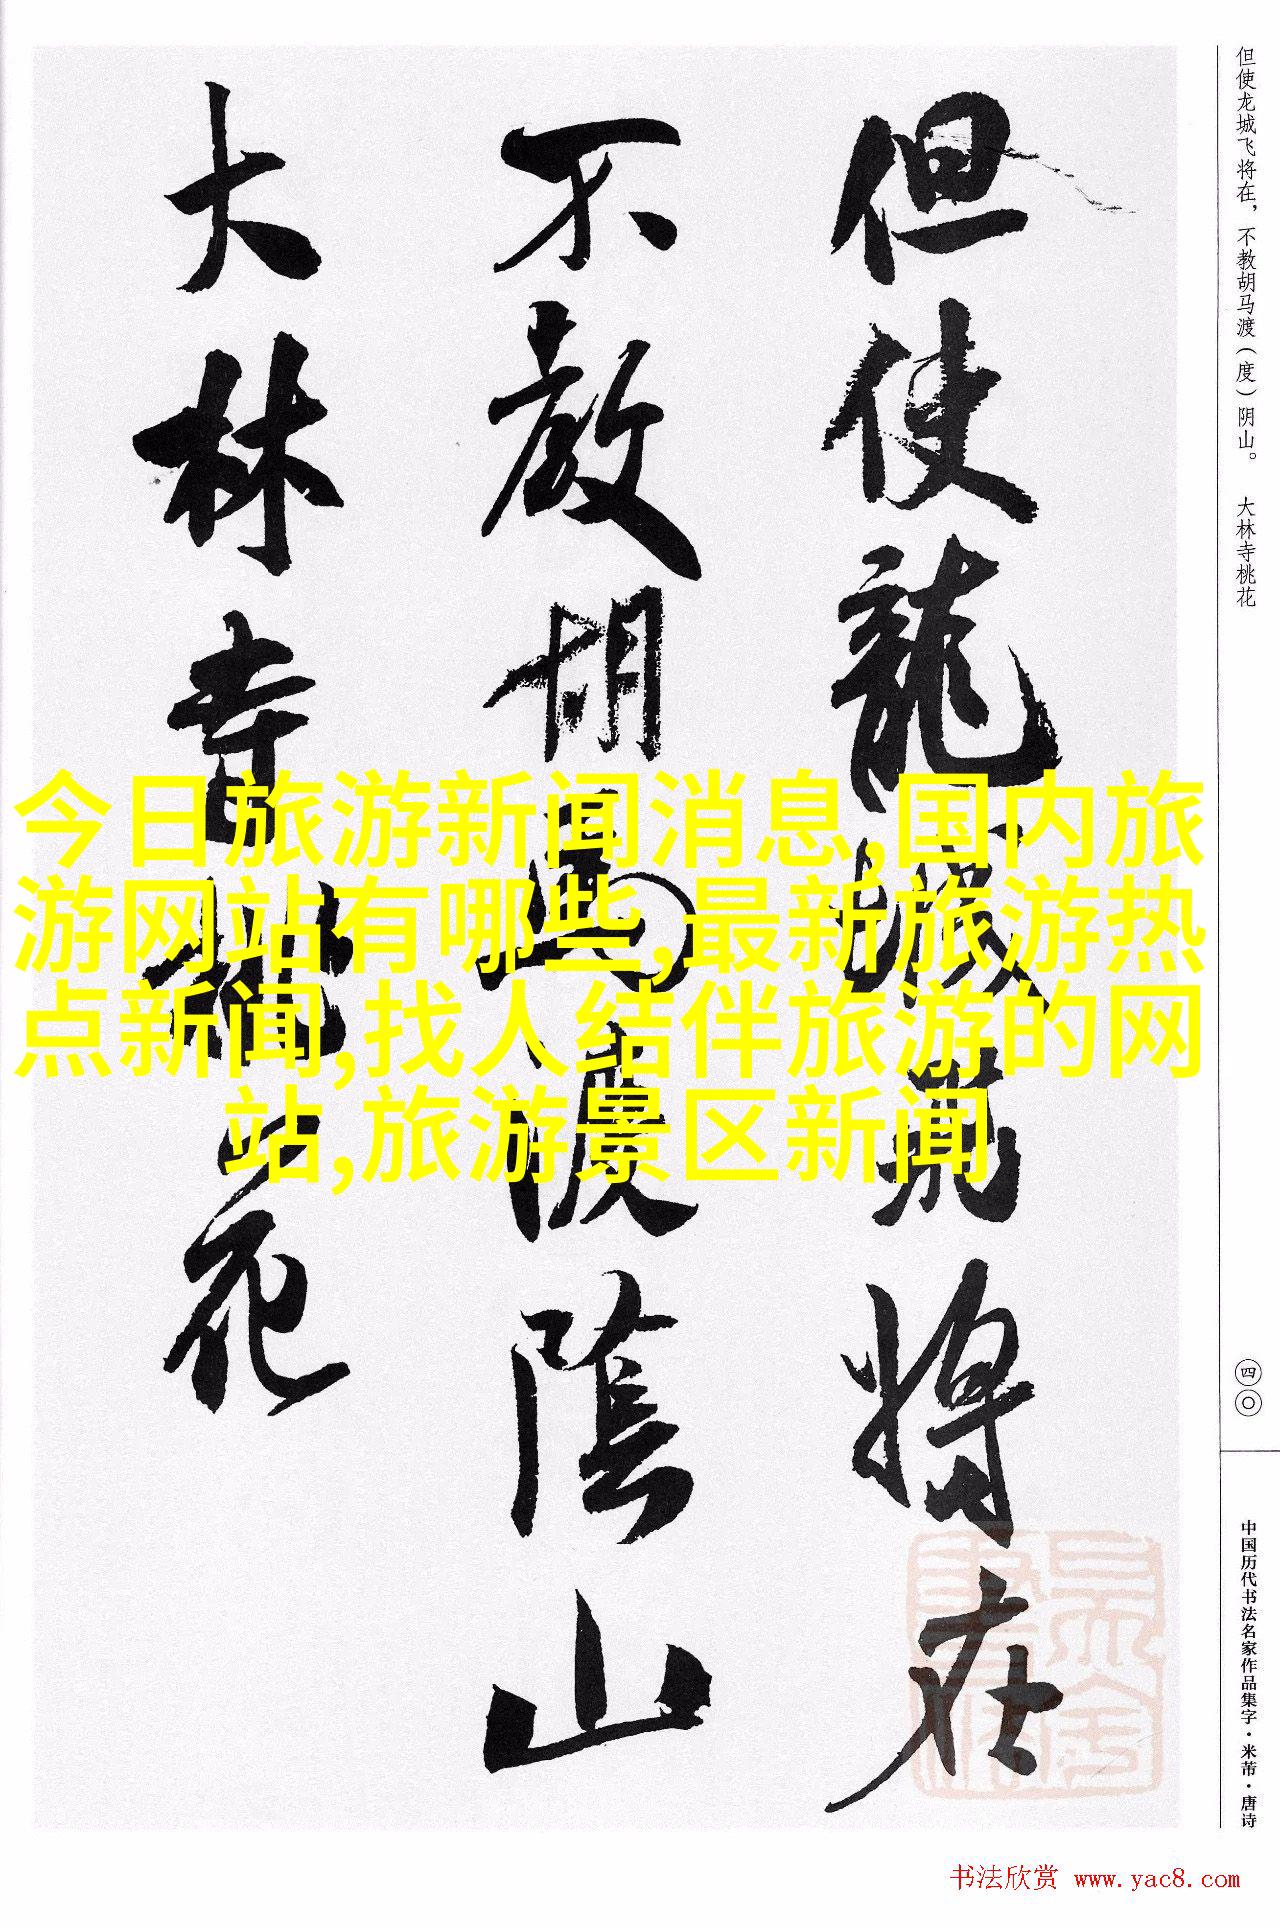 但使龙城飞将在，不教胡马渡（度）阴山。 大林寺桃花
四〇
中国历代书法名家作品集字·米芾·唐诗
但使龍城飛將在
不教胡馬渡陰山
大林寺桃花
今日旅游新闻消息,国内旅
游网站有哪些,最新旅游热
点新闻,找人结伴旅游的网
站,旅游景区新闻
书法欣赏 www.yac8.com